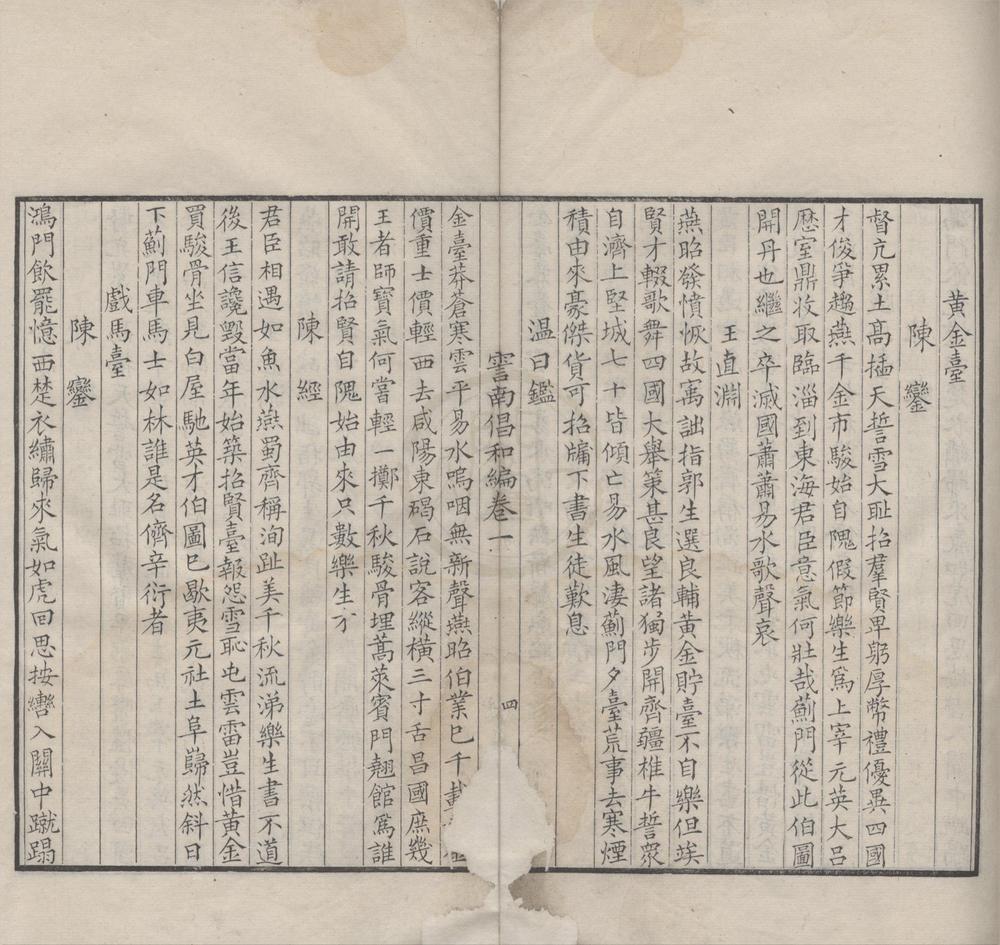 黃金臺
陳鑾
督亢累土高插天誓雪大耻招羣賢卑躬厚幣禮優異四國
才俊爭趨燕千金市駿始自隗假節樂生爲上宰元英大呂
厯室鼎收取臨淄到東海君臣意氣何壯哉薊門從此伯圖
開丹也繼之卒滅國蕭蕭易水歌聲哀
王直淵
燕昭發憤恢故寓詘指郭生選良輔黃金貯臺不自樂但竢
賢才輟歌舞四國大舉策甚良望諸獨步開齊疆椎牛誓衆
自濟上堅城七十皆傾亡易水風淒薊門夕臺荒事去寒煙
積由來豪傑貨可招牖下書生徒歎息
温曰鑑
害南倡和編卷一
四
金臺莽蒼寒雲平易水嗚咽無新聲燕昭伯業巳千載
價重士價輕西去咸陽東碣石說客縱橫三寸舌昌國庶幾
王者師寶氣何嘗輕一擲千秋駿骨埋蒿萊賓門翹館爲誰
開敢請招賢自隗始由來只數樂生才
陳經
君臣相遇如魚水燕蜀齊稱洵趾美千秋流涕樂生書不道
後王信讒毀當年始築招賢臺報怨雪恥屯雲雷豈惜黃金
買駿骨坐見白屋馳英才伯圖巳歇夷元社土阜巋然斜日
下薊門車馬士如林誰是名儕辛衍者
戲馬臺
陳鑾
鴻門飲罷憶西楚衣繡歸來氣如虎回思按轡入關中蹴蹋